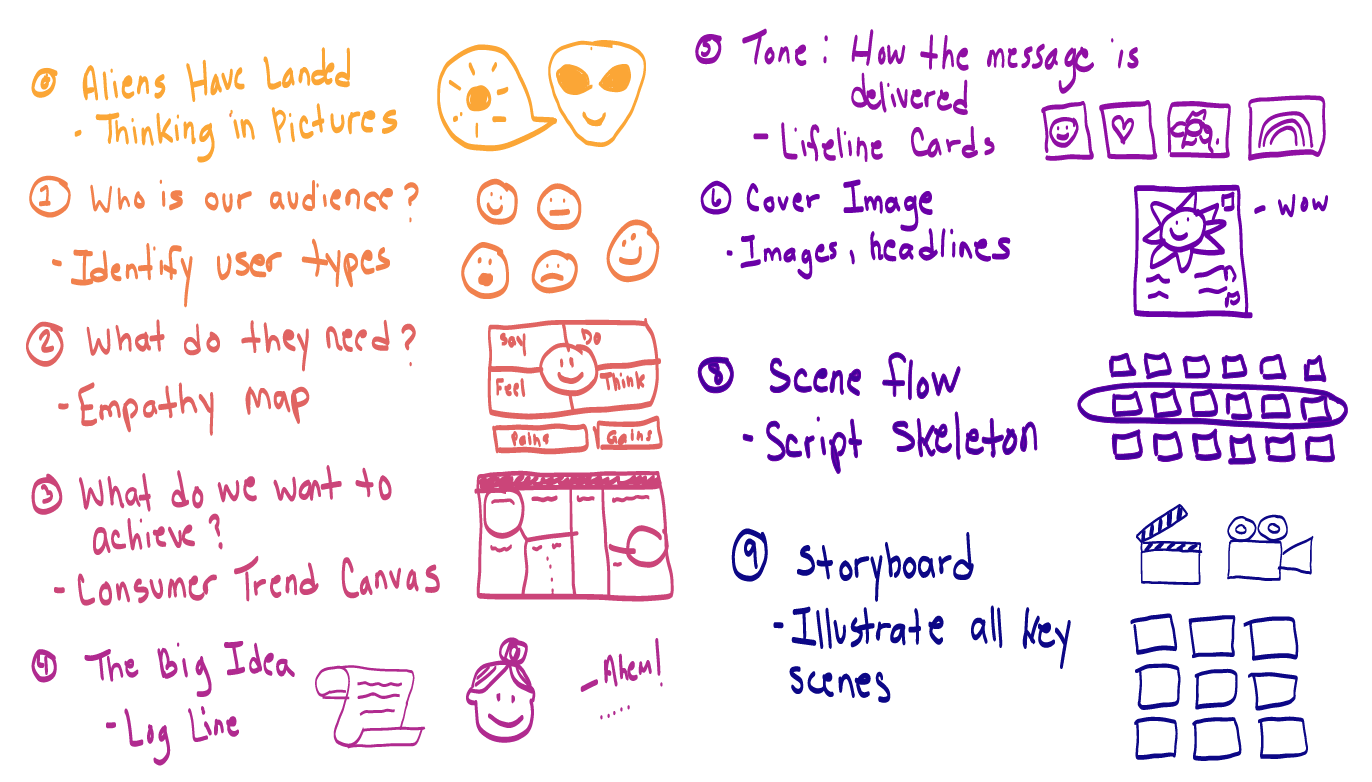 0 Aliens Have Landed
- Thinking in Pictures
1 Who is our audience?
- Identify user types
2 What do they need?
- Empathy Map
Say Do
Feel Think
Pains Gains
3 What do we want to
achieve?
- Consumer Trend Canvas
4 The Big Idea
- Log Line
- Ahem!
5 Tone: How the message is
delivered
- Lifeline Cards
6 Cover Image
- Images, headlines
- wow
8 Scene flow
- Script Skeleton
9 Storyboard
- Illustrate all key
scenes